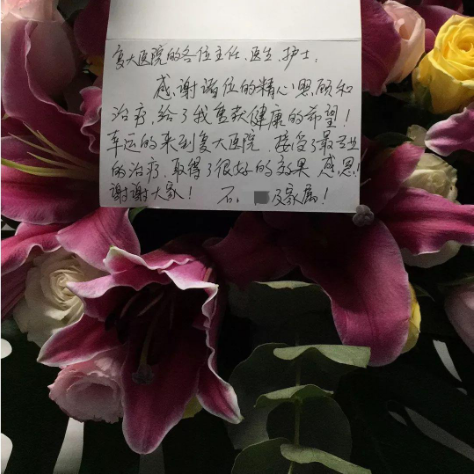 复大医院的各位主任、医生、护士，
感谢诸位的精心照顾和
治疗，给了我重获健康的希望！
幸运的来到复大医院，接受了最专业
的治疗，取得了很好的效果，感恩！
谢谢大家！ 石、 及家属！